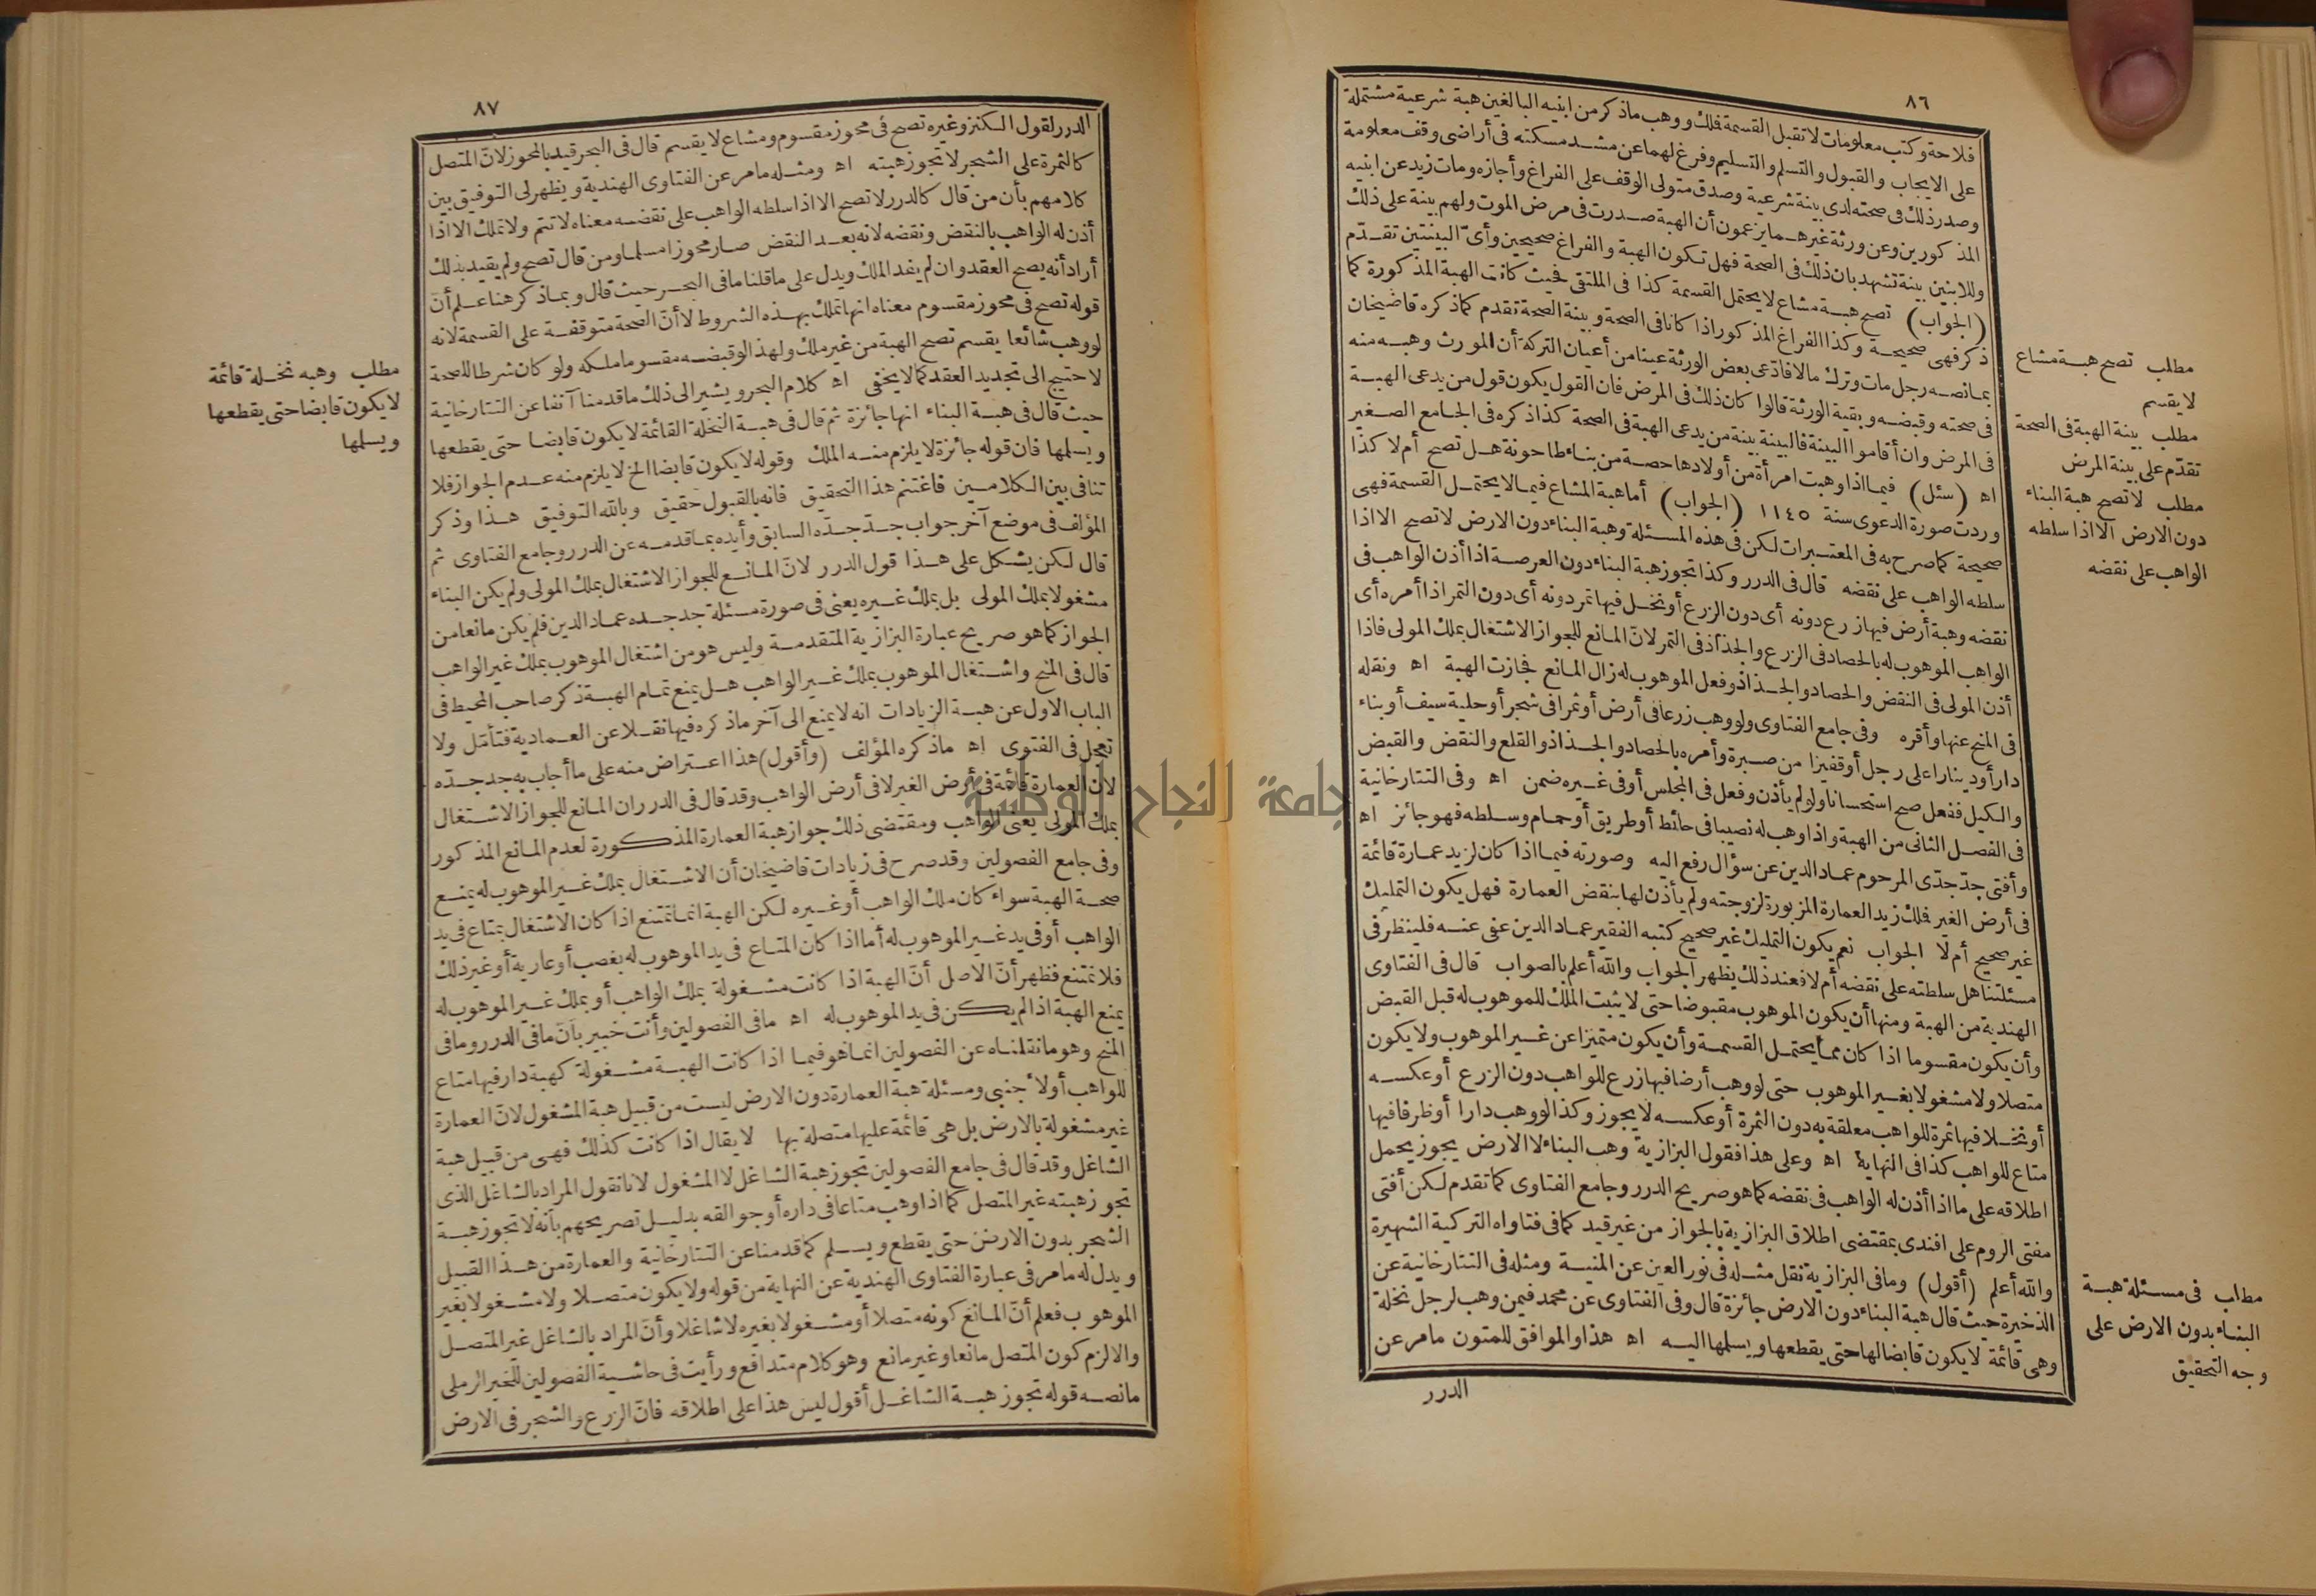 ٨٦
فلاحة وكتب معلومات لا تقبل القسمة فملك ووهب ما ذكر من ابنيه البالغين هبة شرعية مشتملة
على الايجاب والقبول والتسلم والتسليم وفرغ لهما عن مشد مسكته فى أراضى وقف معلومة
وصدر ذلك فى صحته لدى بينة شرعية وصدق متولى الوقف على الفراغ وأجازه ومات زيد عن ابنيه
المذكورين وعن ورثة غيرهما يزعمون أن الهبة صدرت فى مرض الموت ولهم بينة على ذلك
وللابنين بينة تشهد بان ذلك فى الصحة فهل تكون الهبة والفراغ صحيحين وأىّ البينتين تقدّم
(الجواب) تصح هبة مشاع لا يحتمل القسمة كذا فى الملتقى فحيث كانت الهبة المذكورة كما
ذكر فهى صحيحة وكذا الفراغ المذكور اذا كانا فى الصحة وبينة الصحة تقدم كما ذكره قاضيخان
بما نصه رجل مات وترك مالا فادّعى بعض الورثة عينا من أعيان التركة أن المورث وهبه منه
فى صحته وقبضه وبقية الورثة قالوا كان ذلك فى المرض فان القول يكون قول من يدعى الهبة
فى المرض وان أقاموا البينة فالبينة بينة من يدعى الهبة فى الصحة كذا ذكره فى الجامع الصغير
اه (سئل) فيما اذا وهبت امرأة من أولادها حصة من بناء طاحونة هل تصح أم لا كذا
وردت صورة الدعوى سنة ١١٤٥ (الجواب) أما هبة المشاع فيما لا يحتمل القسمة فهى
صحيحة كما صرح به فى المعتبرات لكن فى هذه المسئلة وهبة البناء دون الارض لا تصح الا اذا
سلطه الواهب على نقضه قال فى الدرر وكذا تجوز هبة البناء دون العرصة اذا أذن الواهب فى
نقضه وهبة أرض فيها زرع دونه أى دون الزرع أو نخل فيها تمر دونه أى دون التمر اذا أمره أى
الواهب الموهوب له بالحصاد فى الزرع والجذاذ فى التمر لانّ المانع للجواز الاشتغال بملك المولى فاذا
أذن المولى فى النقض والحصاد والجذاذ وفعل الموهوب له زال المانع فجازت الهبة اه ونقله
فى المنح عنها وأقره وفى جامع الفتاوى ولو وهب زرعا فى أرض أو ثمرا فى شجر أو حلية سيف أو بناء
دار أو دينارا على رجل أو قفيزا من صبرة وأمره بالحصاد والجذاذ والقلع والنقض والقبض
والكيل ففعل صح استحسانا ولو لم يأذن وفعل فى المجلس أو فى غيره ضمن اه وفى التتارخانية
فى الفصل الثانى من الهبة واذا وهب له نصيبا فى حائط أو طريق أو حمام وسلطه فهو جائز اه
وأفتى جدّ جدّى المرحوم عماد الدين عن سؤال رفع اليه وصورته فيما اذا كان لزيد عمارة قائمة
فى أرض الغير فملك زيد العمارة المزبورة لزوجته ولم يأذن لها بنقض العمارة فهل يكون التمليك
غير صحيح أم لا الجواب نعم يكون التمليك غير صحيح كتبه الفقير عماد الدين عفى عنه فلينظر فى
مسئلتنا هل سلطته على نقضه أم لا فعند ذلك يظهر الجواب والله أعلم بالصواب قال فى الفتاوى
الهندية من الهبة ومنها أن يكون الموهوب مقبوضا حتى لا يثبت الملك للموهوب له قبل القبض
وأن يكون مقسوما اذا كان مما يحتمل القسمة وأن يكون متميزا عن غير الموهوب ولا يكون
متصلا ولا مشغولا بغير الموهوب حتى لو وهب أرضا فيها زرع للواهب دون الزرع أو عكسه
أو نخلا فيها ثمرة للواهب معلقة به دون الثمرة أو عكسه لا يجوز وكذا لو وهب دارا أو ظرفا فيها
متاع للواهب كذا فى النهاية اه وعلى هذا فقول البزازية وهب البناء لا الارض يجوز يحمل
اطلاقه على ما اذا أذن له الواهب فى نقضه كما هو صريح الدرر وجامع الفتاوى كما تقدم لكن أفتى
مفتى الروم على افندى بمقتضى اطلاق البزازية بالجواز من غير قيد كما فى فتاواه التركية الشهيرة
والله أعلم (أقول) وما فى البزازية نقل مثله فى نور العين عن المنية ومثله فى التتارخانية عن
الذخيرة حيث قال هبة البناء دون الارض جائزة قال وفى الفتاوى عن محمد فيمن وهب لرجل نخلة
وهى قائمة لا يكون قابضا لها حتى يقطعها ويسلمها اليه اه هذا والموافق للمتون ما مر عن
الدرر
مطلب تصح هبة مشاع
لا يقسم
مطلب بينة الهبة فى الصحة
تقدّم على بينة المرض
مطلب لا تصح هبة البناء
دون الارض الا اذا سلطه
الواهب على نقضه
مطلب فى مسئلة هبة
البناء بدون الارض على
وجه التحقيق
٨٧
الدرر لقول الكنز وغيره تصح فى محوز مقسوم ومشاع لا يقسم قال فى البحر قيد بالمحوز لانّ المتصل
كالثمرة على الشجر لا تجوز هبته اه ومثله ما مر عن الفتاوى الهندية ويظهر لى التوفيق بين
كلامهم بأن من قال كالدرر لا تصح الا اذا سلطه الواهب على نقضه معناه لا تتم ولا تملك الا اذا
أذن له الواهب بالنقض ونقضه لانه بعد النقض صار محوزا مسلما ومن قال تصح ولم يقيد بذلك
أراد أنه يصح العقد وان لم يفد الملك ويدل على ما قلنا ما فى البحر حيث قال وبما ذكر هنا علم أن
قوله تصح فى محوز مقسوم معناه انها تملك بهذه الشروط لا أنّ الصحة متوقفة على القسمة لانه
لو وهب شائعا يقسم تصح الهبة من غير ملك ولهذا لو قبضه مقسوما ملكه ولو كان شرطا للصحة
لاحتيج الى تجديد العقد كما لا يخفى اه كلام البحر ويشير الى ذلك ما قدمنا آنفا عن التتارخانية
حيث قال فى هبة البناء انها جائزة ثم قال فى هبة النخلة القائمة لا يكون قابضا حتى يقطعها
ويسلمها فان قوله جائزة لا يلزم منه الملك وقوله لا يكون قابضا الخ لا يلزم منه عدم الجواز فلا
تنافى بين الكلامين فاغتنم هذا التحقيق فانه بالقبول حقيق وبالله التوفيق هذا وذكر
المؤلف فى موضع آخر جواب جدّ جدّه السابق وأيده بما قدمه عن الدرر وجامع الفتاوى ثم
قال لكن يشكل على هذا قول الدرر لانّ المانع للجواز الاشتغال بملك المولى ولم يكن البناء
مشغولا بملك المولى بل بملك غيره يعنى فى صورة مسئلة جد جده عماد الدين فلم يكن مانعا من
الجواز كما هو صريح عبارة البزازية المتقدمة وليس هو من اشتغال الموهوب بملك غير الواهب
قال فى المنح واشتغال الموهوب بملك غير الواهب هل يمنع تمام الهبة ذكر صاحب المحيط فى
الباب الاول عن هبة الزيادات انه لا يمنع الى آخر ما ذكره فيها نقلا عن العمادية فتأمّل ولا
تعجل فى الفتوى اه ما ذكره المؤلف (وأقول) هذا اعتراض منه على ما أجاب به جد جدّه
لان العمارة قائمة فى أرض الغير لا فى أرض الواهب وقد قال فى الدرر ان المانع للجواز الاشتغال
بملك المولى يعنى الواهب ومقتضى ذلك جواز هبة العمارة المذكورة لعدم المانع المذكور
وفى جامع الفصولين وقد صرح فى زيادات قاضيخان أن الاشتغال بملك غير الموهوب له يمنع
صحة الهبة سواء كان ملك الواهب أو غيره لكن الهبة انما تمتنع اذا كان الاشتغال بمتاع فى يد
الواهب أو فى يد غير الموهوب له أما اذا كان المتاع فى يد الموهوب له بغصب أو عارية أو غير ذلك
فلا تمتنع فظهر أنّ الاصل أنّ الهبة اذا كانت مشغولة بملك الواهب أو بملك غير الموهوب له
يمنع الهبة اذا لم يكن فى يد الموهوب له اه ما فى الفصولين وأنت خبير بأنّ ما فى الدرر وما فى
المنح وهو ما نقلناه عن الفصولين انما هو فيما اذا كانت الهبة مشغولة كهبة دار فيها متاع
للواهب أو لأجنبى ومسئلة هبة العمارة دون الارض ليست من قبيل هبة المشغول لانّ العمارة
غير مشغولة بالارض بل هى قائمة عليها متصلة بها لا يقال اذا كانت كذلك فهى من قبيل هبة
الشاغل وقد قال فى جامع الفصولين تجوز هبة الشاغل لا المشغول لانا نقول المراد بالشاغل الذى
تجوز هبته غير المتصل كما اذا وهب متاعا فى داره أو جوالقه بدليل تصريحهم بأنه لا تجوز هبة
الشجر بدون الارض حتى يقطع ويسلم كما قدمنا عن التتارخانية والعمارة من هذا القبيل
ويدل له ما مر فى عبارة الفتاوى الهندية عن النهاية من قوله ولا يكون متصلا ولا مشغولا بغير
الموهوب فعلم أنّ المانع كونه متصلا أو مشغولا بغيره لا شاغلا وأنّ المراد بالشاغل غير المتصل
والا لزم كون المتصل مانعا وغير مانع وهو كلام متدافع ورأيت فى حاشية الفصولين للخير الرملى
ما نصه قوله تجوز هبة الشاغل أقول ليس هذا على اطلاقه فانّ الزرع والشجر فى الارض
مطلب وهبه نخلة قائمة
لا يكون قابضا حتى يقطعها
ويسلمها
جامعة النجاح الوطنية